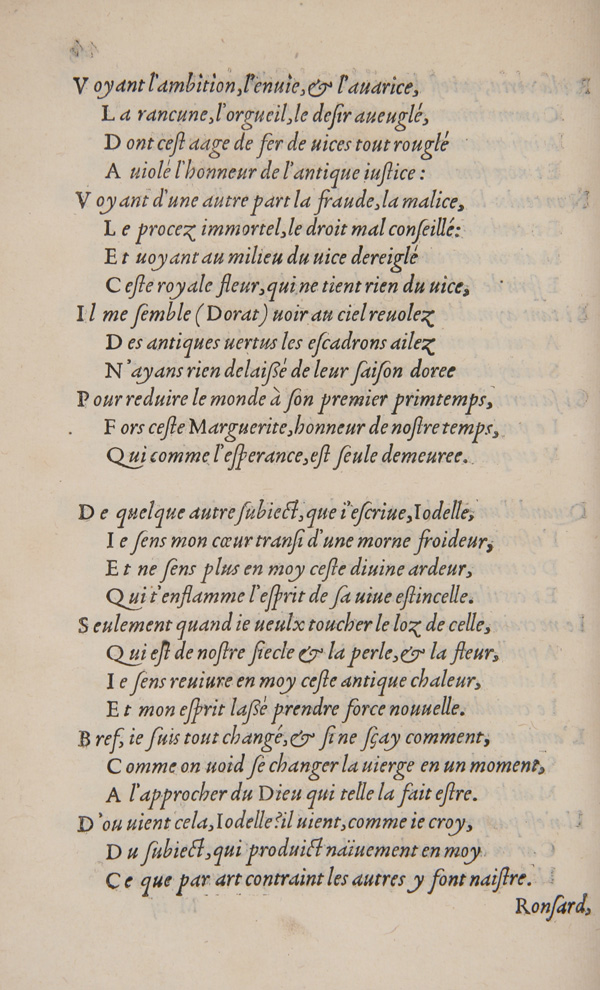 Voyant l'ambition, l'enuie, & l'auarice,
La rancune, l'orgueil, le desir aueuglé,
Dont cest aage de fer de uices tout rouglé
A uiolé l'honneur de l'antique iustice:
Voyant d'une autre part la fraude, la malice,
Le procez immortel, le droit mal conseillé:
Et uoyant au milieu du uice dereiglé
Ceste royale fleur, qui ne tient rien du uice,
Il me semble (Dorat) uoir au ciel reuolez
Des antiques uertus les escadrons ailez
N'ayans rien delaißé de leur saison doree
Pour reduire le monde à son premier primtemps,
Fors ceste Marguerite, honneur de nostre temps,
Qui comme l'esperance, est seule demeuree.
De quelque autre subiect, que i'escriue, Iodelle,
Ie sens mon cœur transi d'une morne froideur,
Et ne sens plus en moy ceste diuine ardeur,
Qui t'enflamme l'esprit de sa uiue estincelle.
Seulement quand ie ueulx toucher le loz de celle,
Qui est de nostre siecle & la perle, & la fleur,
Ie sens reuiure en moy ceste antique chaleur,
Et mon esprit laßé prendre force nouuelle.
Bref, ie suis tout changé, & si ne sçay comment,
Comme on uoid se changer la uierge en un moment,
A l'approcher du Dieu qui telle la fait estre.
D'ou uient cela, Iodelle? il uient, comme ie croy,
Du subiect, qui produict naïuement en moy
Ce que par art contraint les autres y font naistre.
Ronsard,